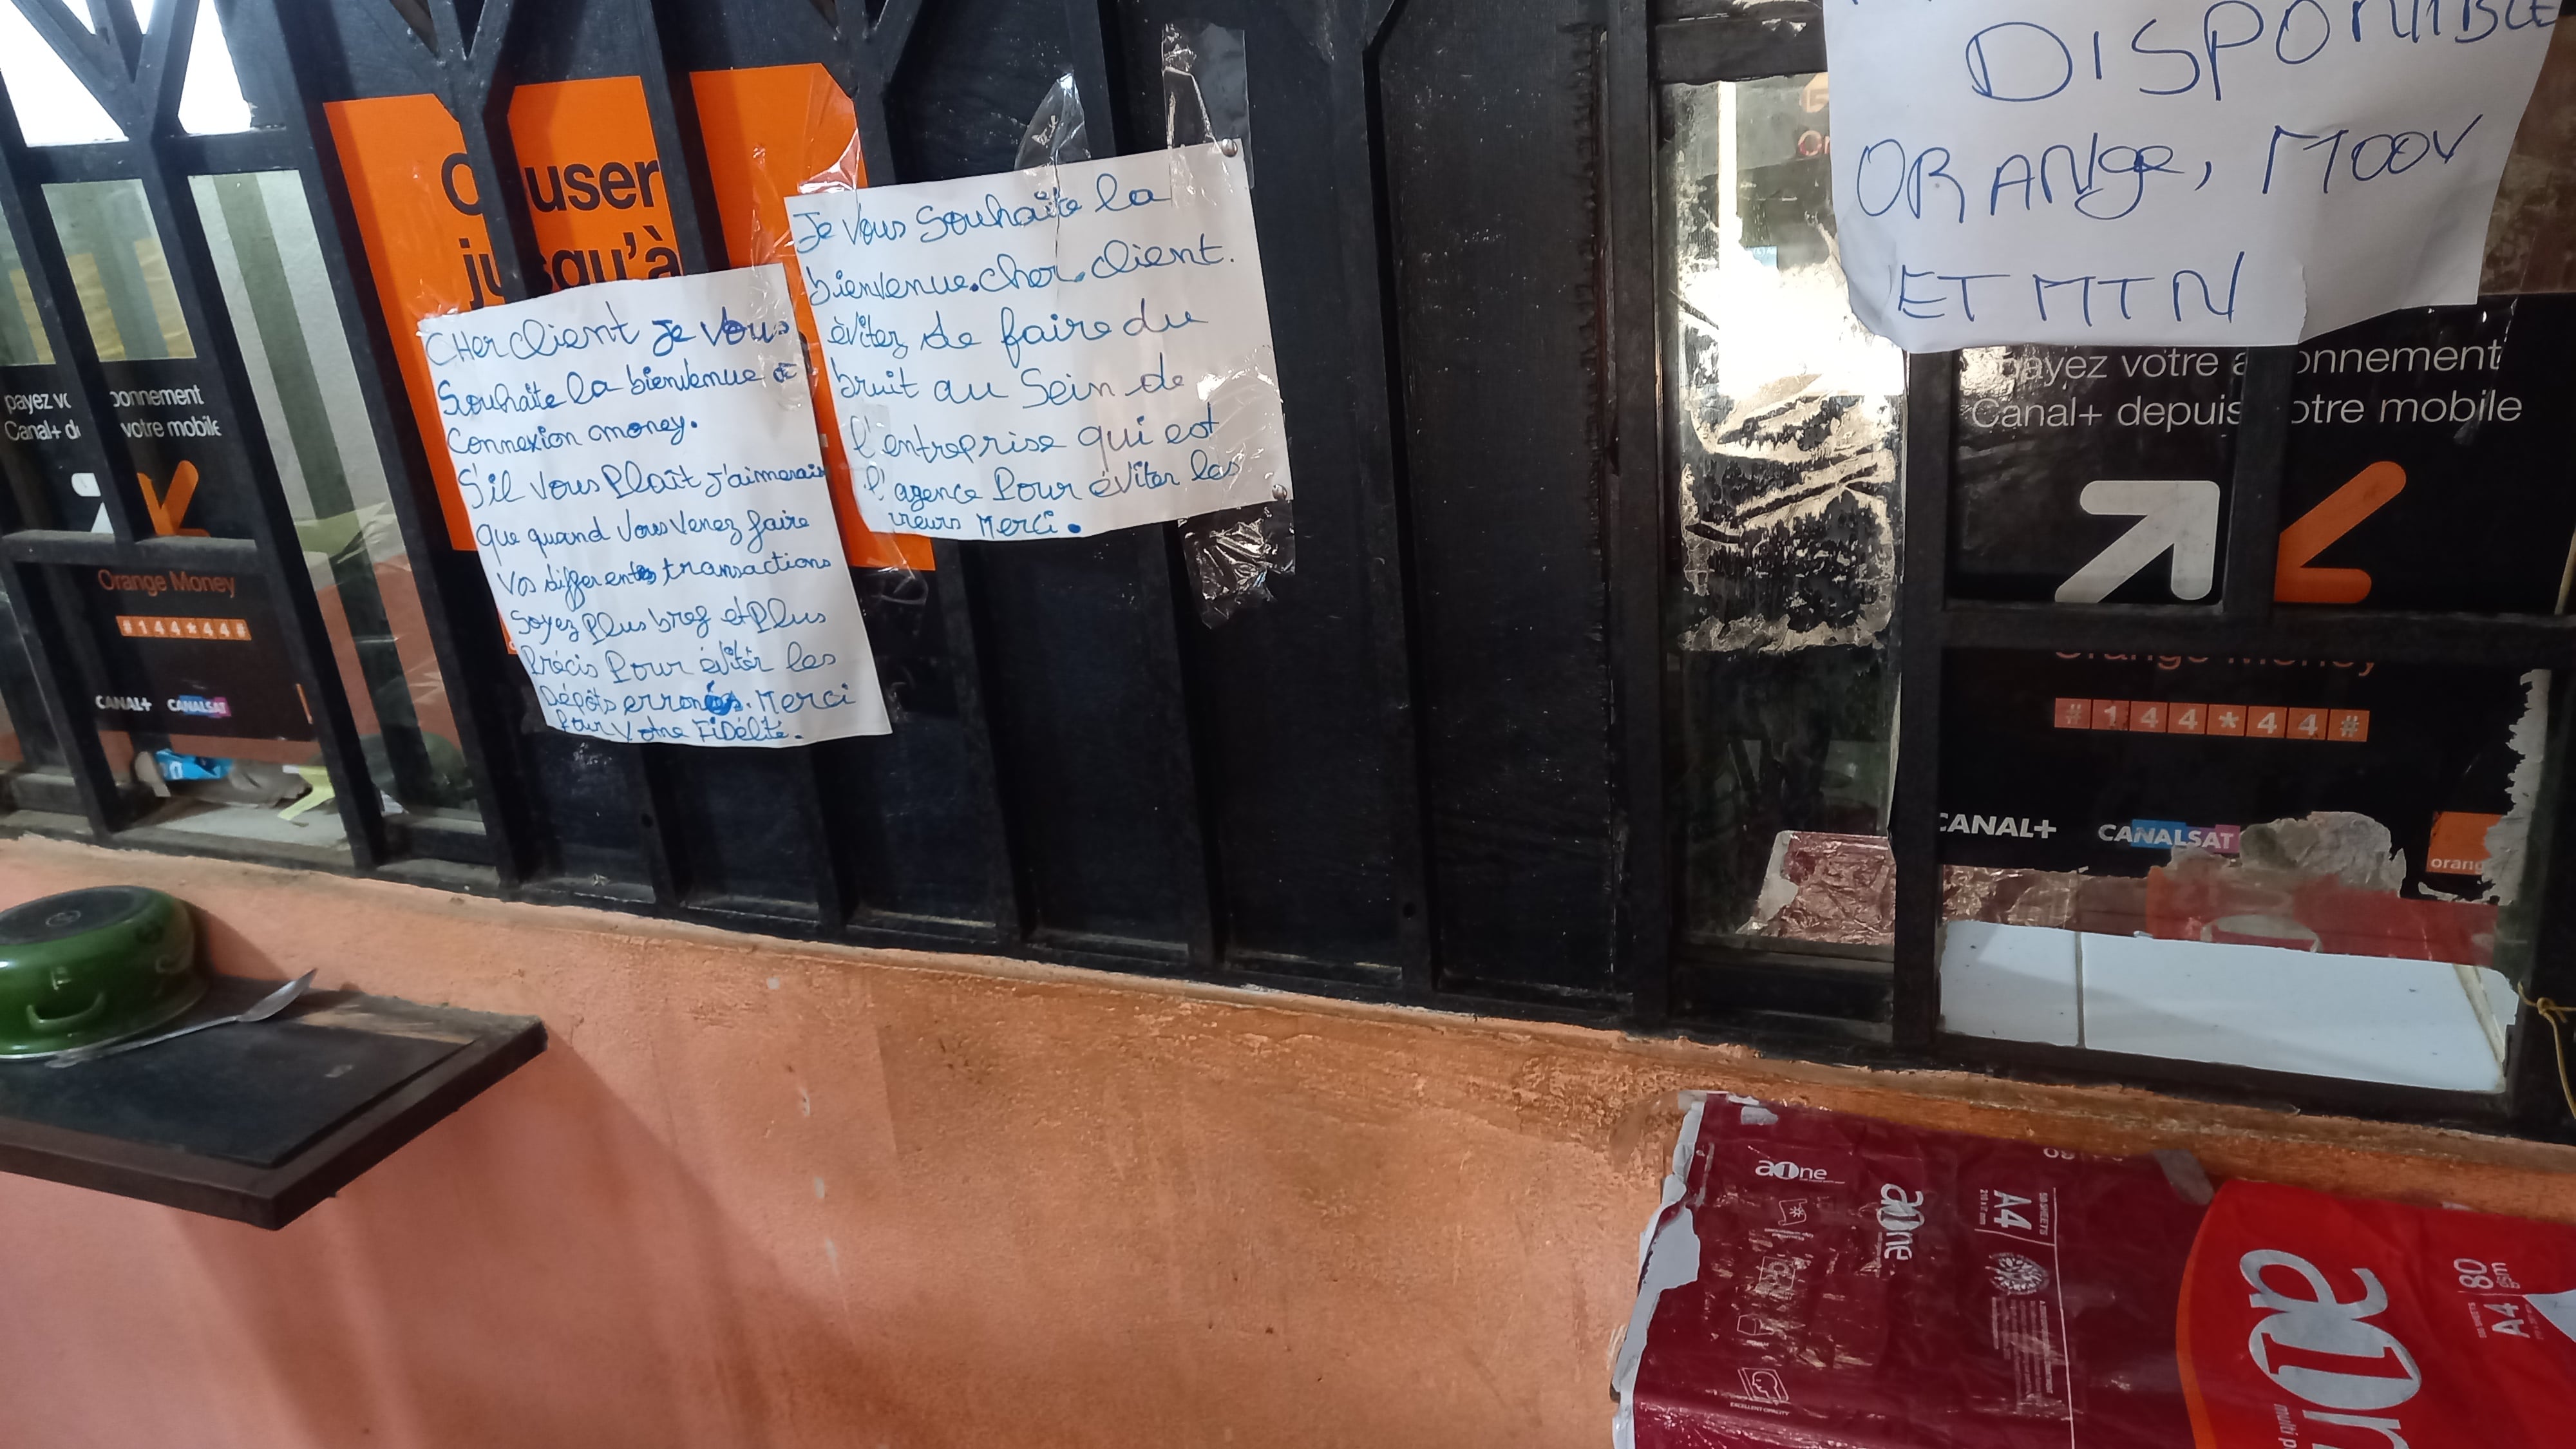 user
jusqu'à
CHer client je vous
Souhaite la bienvenue
Connexion money.
S'il vous plaît j'aimerais
que quand vous venez faire
vos differentes transactions
Soyez Plus bref et Plus
Précis Pour éviter les
Dépôts erronés. Merci
Pour Votre FiDélité.
Je vous Souhaite la
bienvenue. cher client.
évitez de faire du
bruit au Sein de
l'entreprise qui est
l'agence Pour éviter les
Merci.
DISPONIBLE
ORANge, MOOV
ET MTN
payez
onnement
Canal+
votre mobile
Orange Money
#144*44#
CANAL+ CANALSAT
payez votre a onnement
Canal+ depuis otre mobile
Orange Money
#144*44#
CANAL+ CANALSAT
orang
a1ne
a1ne
A4
EXCELLENT OPACITY
80
gsm
A4